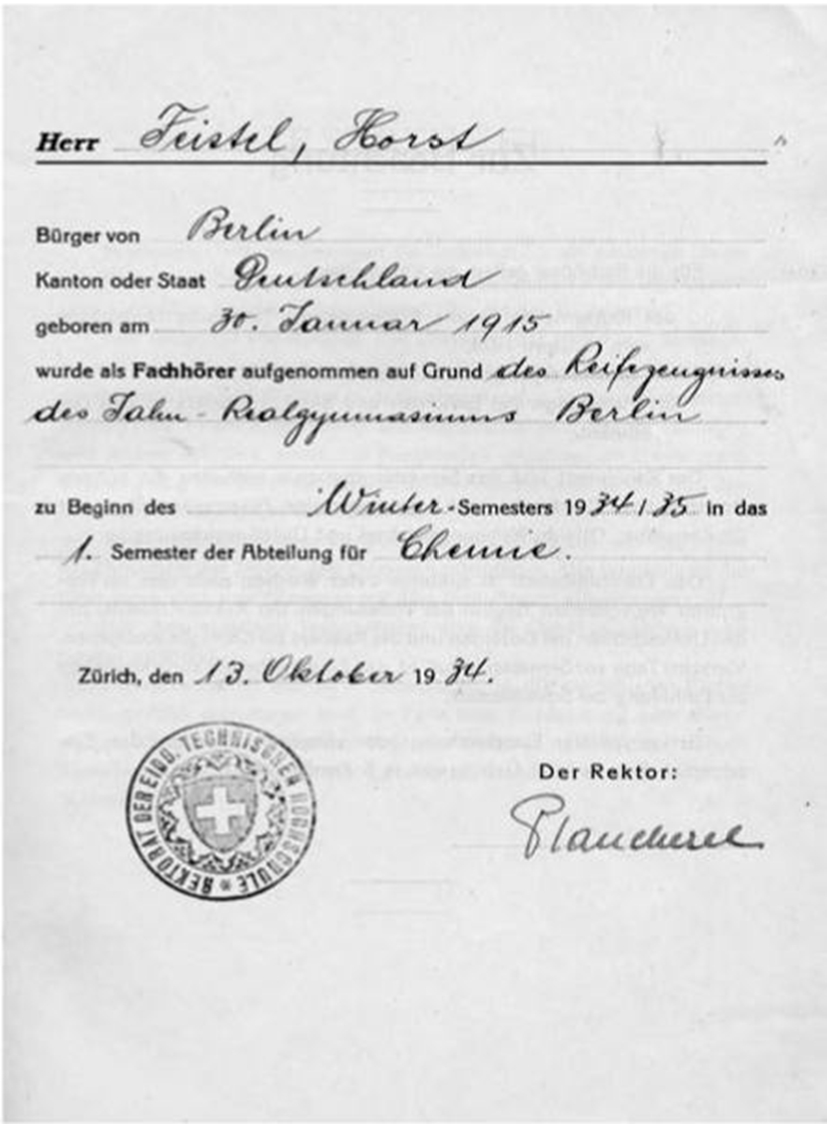 Herr Feistel, Horst
Bürger von Berlin
Kanton oder Staat Deutschland
geboren am 30. Januar 1915
wurde als Fachhörer aufgenommen auf Grund des Reifezeugnisses
des Jahn-Realgymnasiums Berlin
zu Beginn des Winter-Semesters 1934/35 in das
1. Semester der Abteilung für Chemie.
Zürich, den 13. Oktober 1934.
REKTORAT DER EIDG. TECHNISCHEN HOCHSCHULE
Der Rektor:
Plancherel